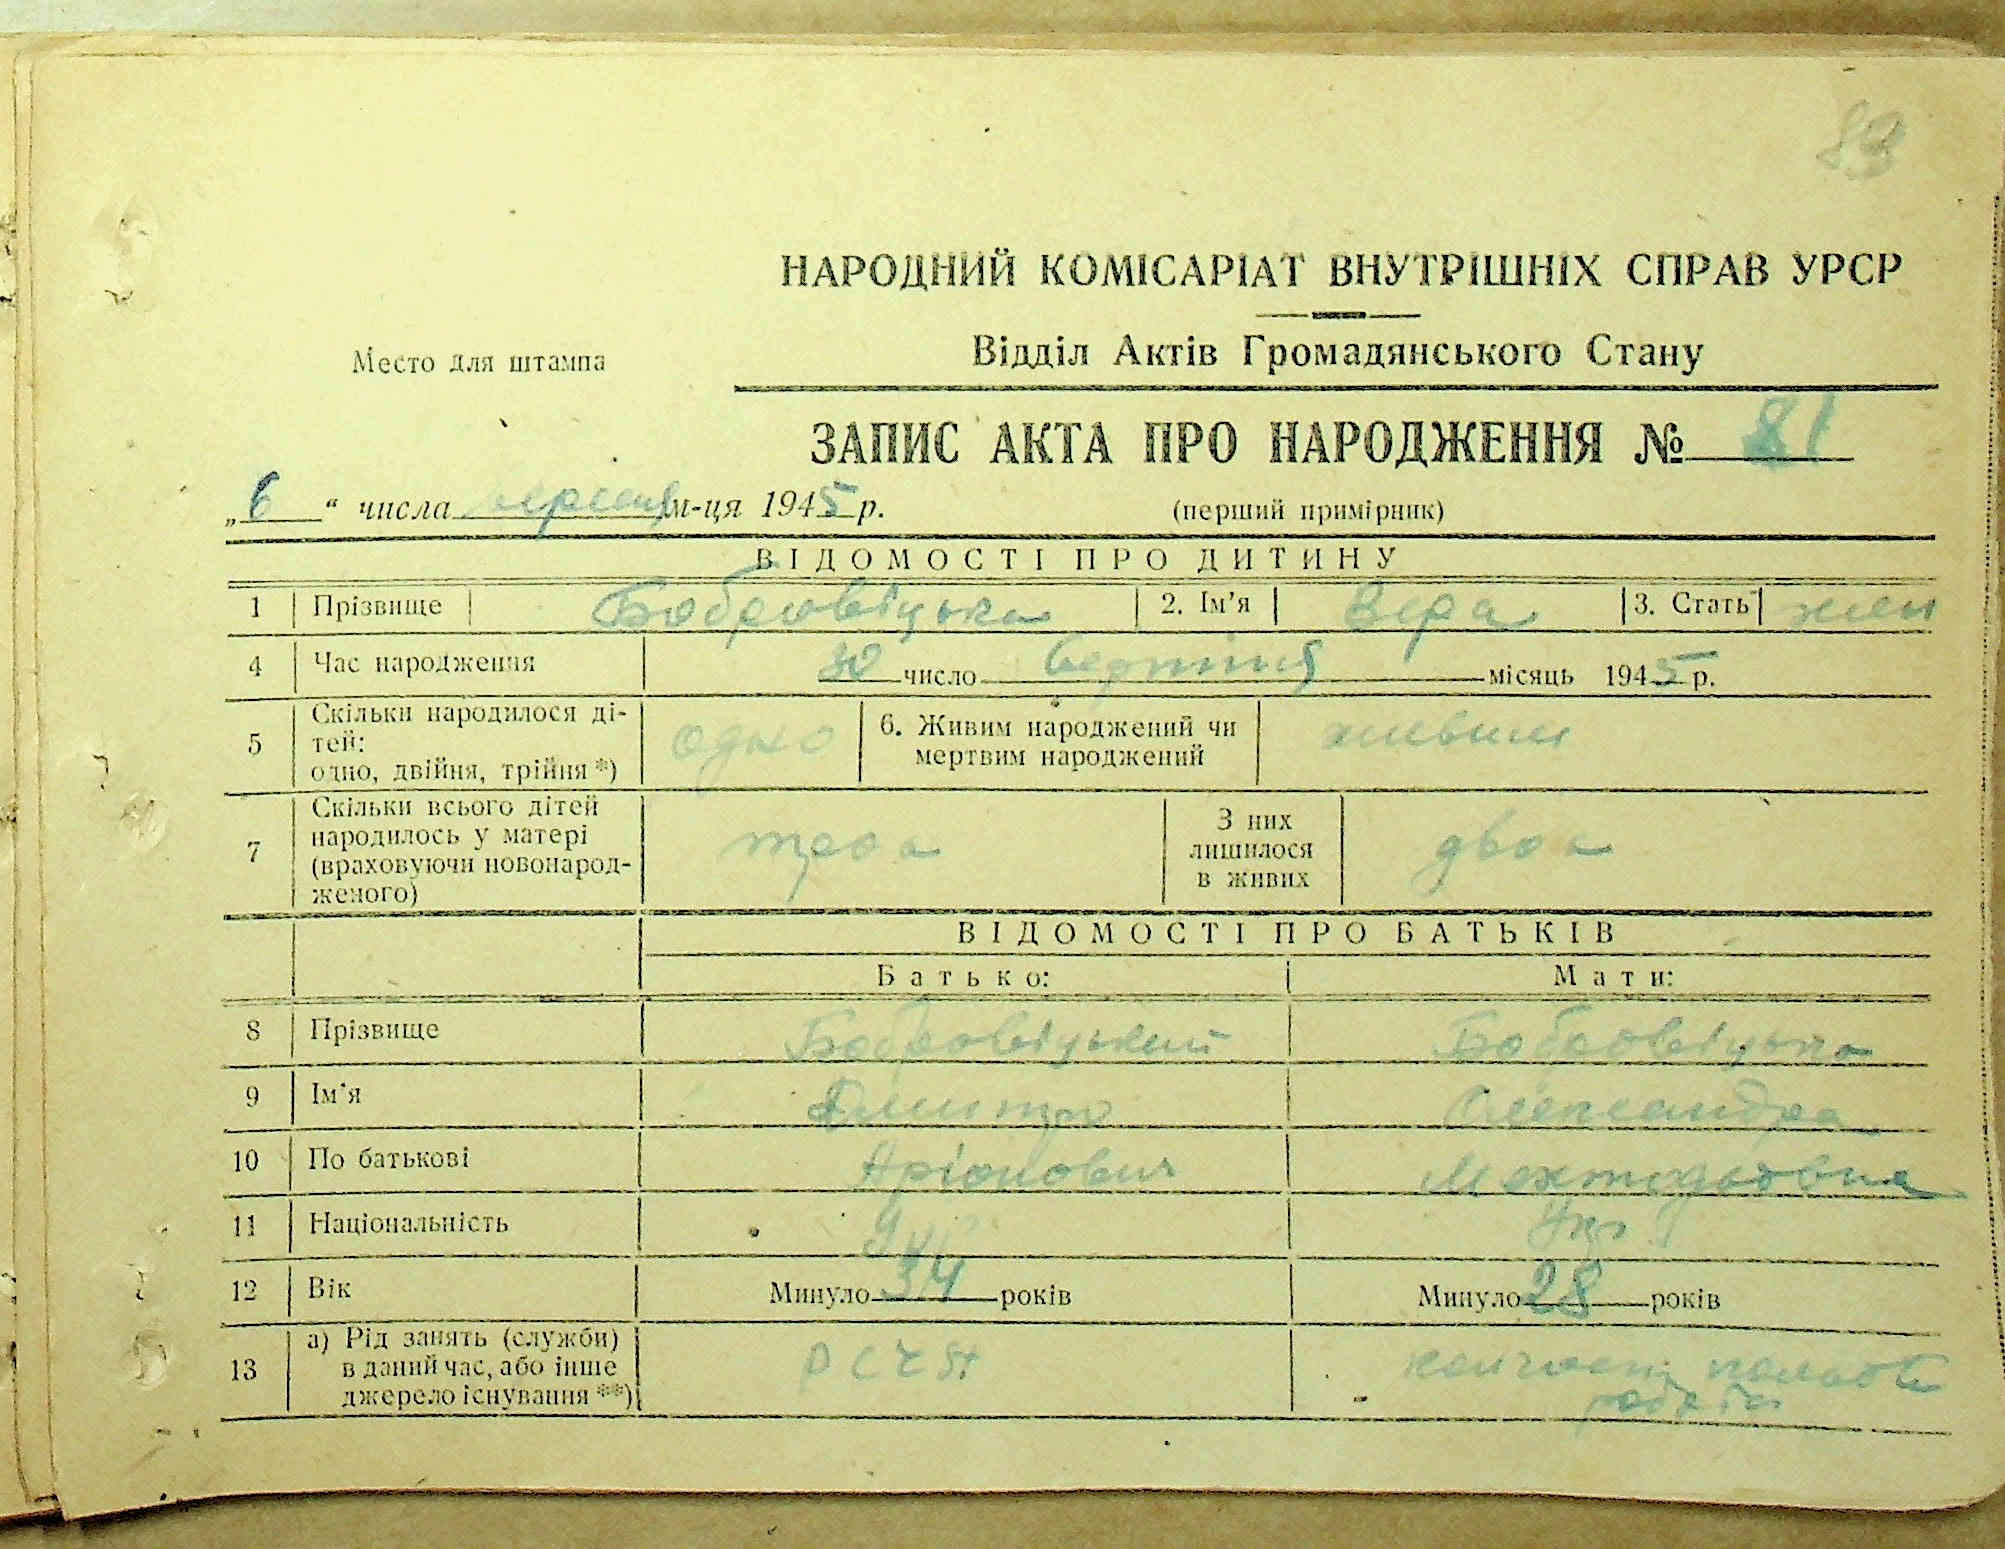 83
НАРОДНИЙ КОМІСАРІАТ ВНУТРІШНІХ СПРАВ УРСР
Место для штампа
Відділ Актів Громадянського Стану
ЗАПИС АКТА ПРО НАРОДЖЕННЯ № 81
„6“ числа вересня м-ця 1945 р. (перший примірник)
ВІДОМОСТІ ПРО ДИТИНУ
1 Прізвище Бобровіцька 2. Ім'я Вера 3. Стать жен
4 Час народження 30 число місяць 1945 р.
5 Скільки народилося ді-
тей:
одно, двійня, трійня *) одно 6. Живим народжений чи
мертвим народжений живим
7 Скільки всього дітей
народилось у матері
(враховуючи новонарод-
женого) троа
З них
лишилося
в живих двоа
ВІДОМОСТІ ПРО БАТЬКІВ
Батько: Мати:
8 Прізвище Бобровіцький Бобровіцька
9 Ім'я Дмитро Олександра
10 По батькові
11 Національність Укр Укр
12 Вік Минуло 34 років Минуло 28 років
13 а) Рід занять (служби)
в даний час, або інше
джерело існування **)